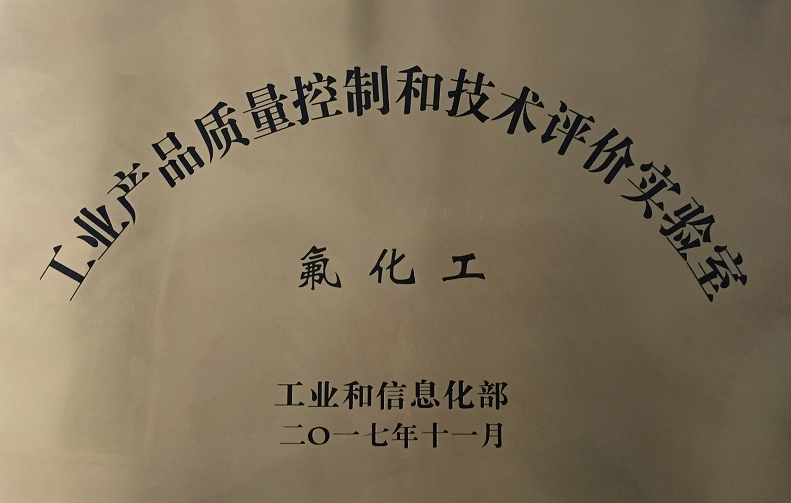 工业产品质量控制和技术评价实验室
氟化工
工业和信息化部
二〇一七年十一月